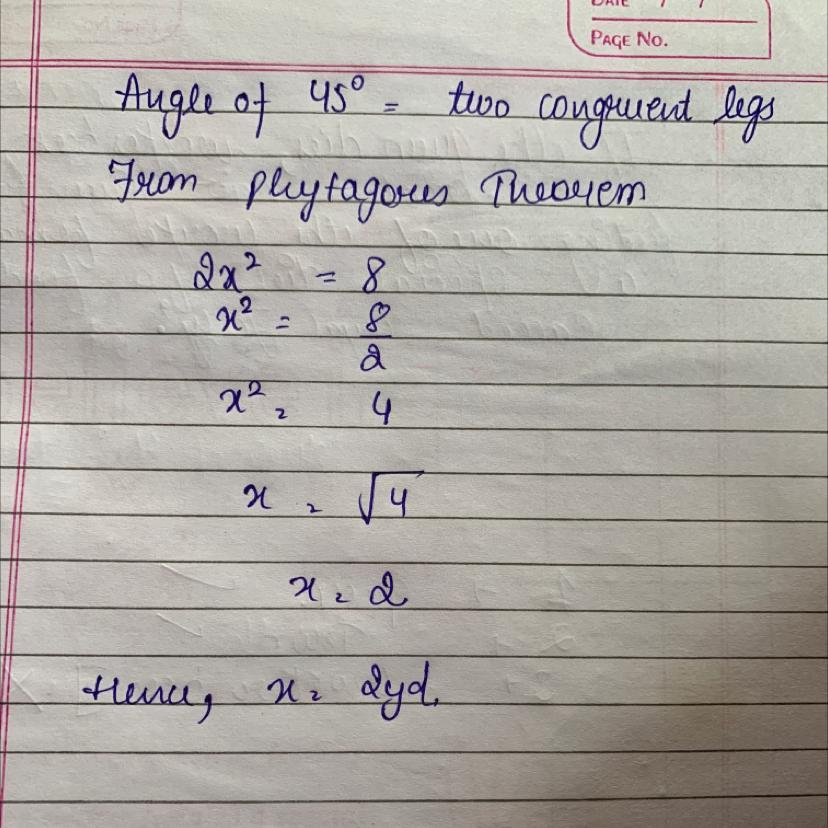 DATE / /
PAGE NO.
Angle of 45° = two congruent legs
From phytagorus Theorem
2x² = 8
x² = 8/2
x² = 4
x = √4
x = 2
Hence, x = 2yd.